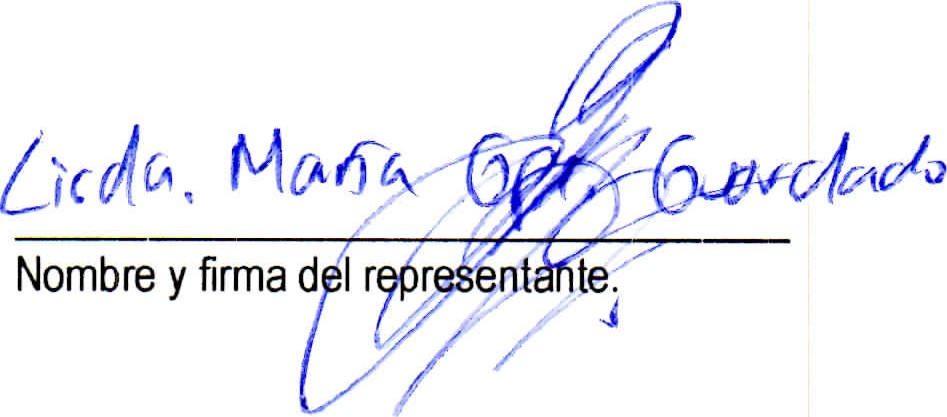 Licda. María Guardado
Nombre y firma del representante.